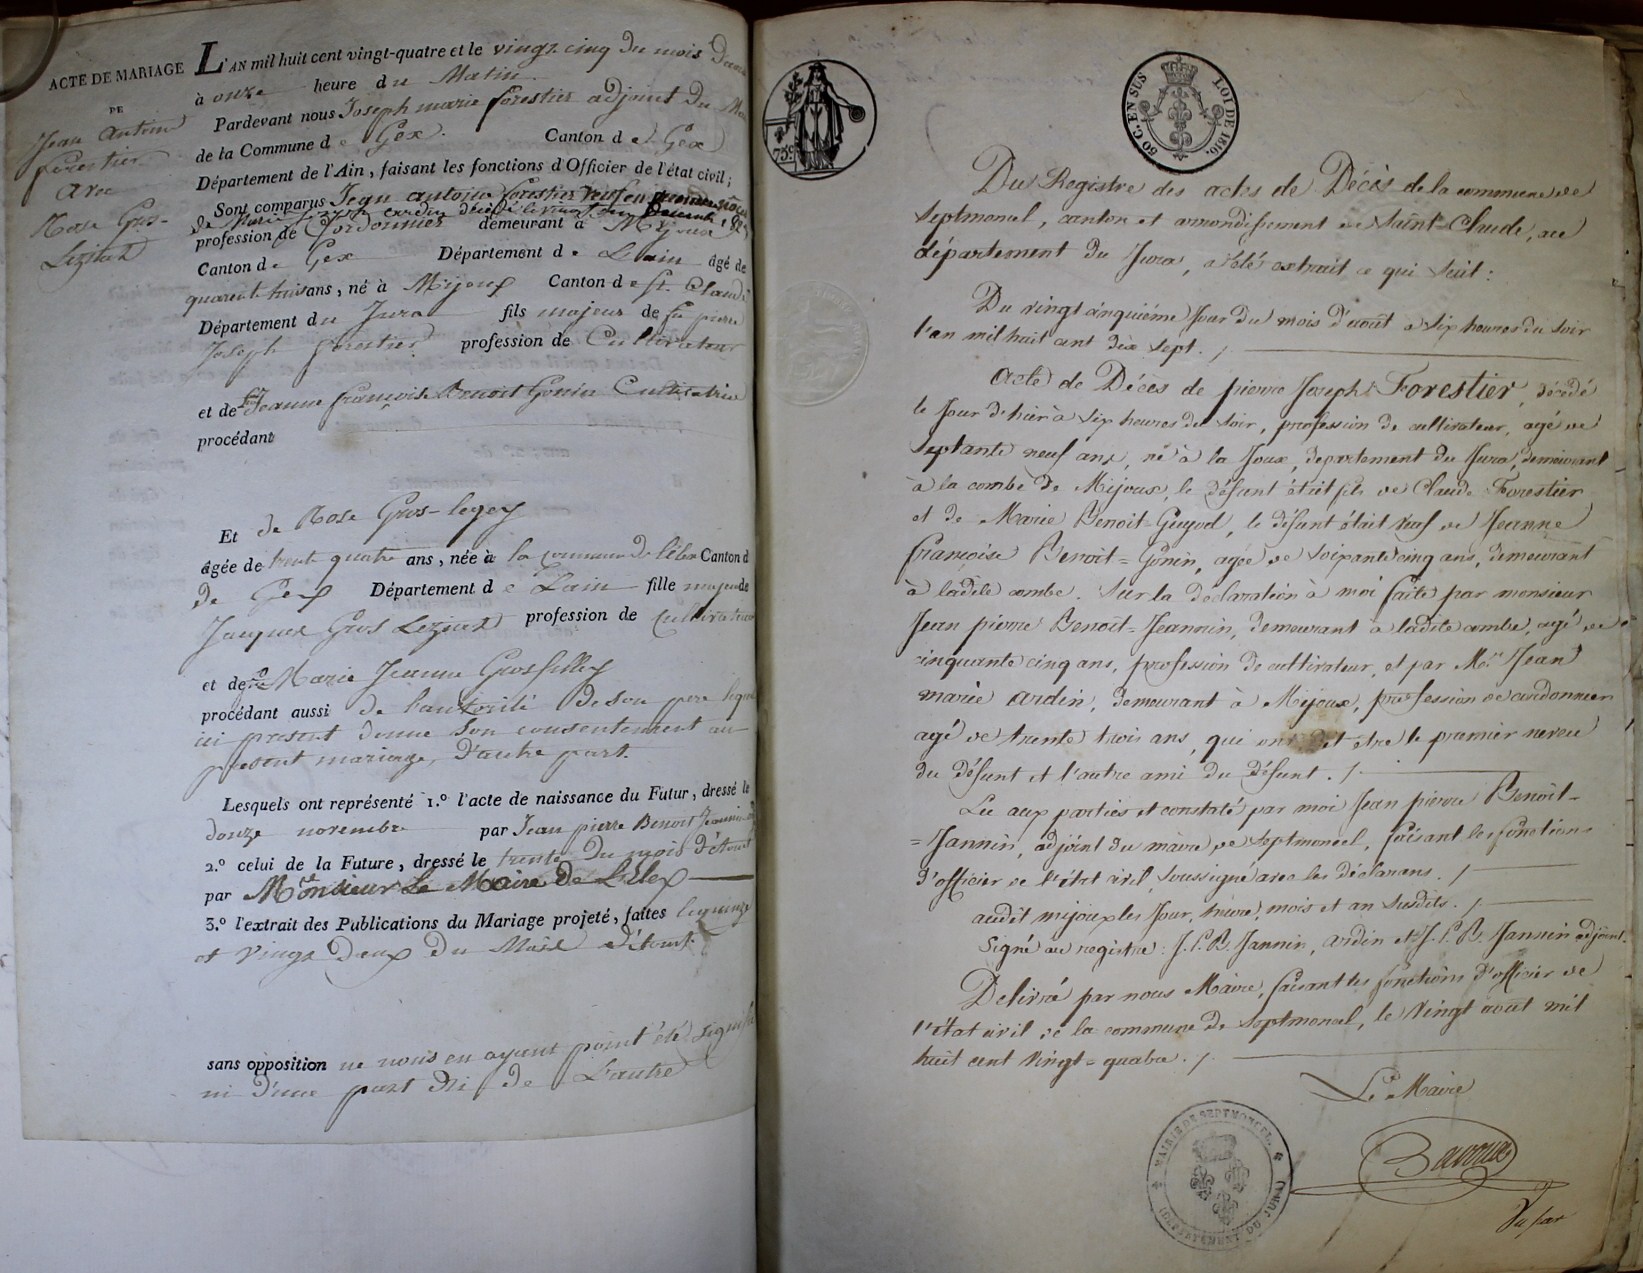 ACTE DE MARIAGE
DE
Jean Antoine
forestier
avec
Rose Gros-
Leziat
L'AN mil huit cent vingt-quatre et le vingt cinq du mois
à onze heure du Matin
Pardevant nous Joseph marie forestier adjoint du
de la Commune de Gex. Canton de Gex
Département de l'Ain, faisant les fonctions d'Officier de l'état civil;
Sont comparus Jean antoine forestier veuf en
de Marie
profession de Cordonnier demeurant à Mijoux
Canton de Gex Département de L'ain âgé de
quarente ans, né à Mijoux Canton de St. Claude
Département du Jura fils majeur de feu pierre
Joseph forestier profession de Cultivateur
et de Jeanne françoise Benoit Gonin Cultivatrice
procédant
Et de Rose Gros-
âgée de trente quatre ans, née à la commune de Canton d
de Gex Département de L'ain fille majeure de
Jacques Gros Leziat profession de Cultivateur
et de Marie Jeanne Grosfilley
procédant aussi de l'autorité de son pere
ici present donne son consentement au
present mariage, d'autre part.
Lesquels ont représenté 1.° l'acte de naissance du Futur, dressé le
douze novembre par Jean pierre Benoit Jeannin
2.° celui de la Future, dressé le trente du mois d'
par Monsieur Le Maire de Lélex
3.° l'extrait des Publications du Mariage projeté, faites le quinze
et vingt deux du Mois
sans opposition ne nous en ayant point été
ni d'une part ni de L'autre
75 c.
50 C. EN SUS
LOI DE 1816.
Du Registre des actes de Décès de la commune de
Septmoncel, canton et arrondissement de Saint-Claude, au
département du Jura, a été extrait ce qui suit:
Du vingt cinquième Jour du mois d'août a six heures du soir
l'an mil huit cent dix sept.
Acte de Décès de pierre Joseph Forestier, décédé
le Jour d'hier à six heures du soir, profession de cultivateur, agé de
septante neuf ans, né à la Joux, departement du Jura, demeurant
à la combe de Mijoux, le défunt était fils de Claude Forestier
et de Marie Benoit=Guyod, le défunt était veuf de Jeanne
françoise Benoit=Gonin, agée de soixante cinq ans, demeurant
à ladite combe. Sur la declaration à moi faite par monsieur
Jean pierre Benoit=Jeannin, demeurant a ladite combe, agé de
cinquante cinq ans, profession de cultivateur, et par Mr. Jean
marie ardin, demeurant à Mijoux, profession de cordonnier
agé de trente trois ans, qui ont dit être le premier neveu
du défunt et l'autre ami du Défunt.
Lu aux parties et constaté par moi Jean pierre Benoit-
=Jannin, adjoint du maire de Septmoncel, faisant les fonctions
d'officier de l'état civil, soussigné avec les déclarans.
audit mijoux les Jour, heure, mois et an susdits.
Signé au registre: J. P. B. Jannin, ardin et J. P. B. Jannin adjoint.
Délivré par nous Maire, faisant les fonctions d'officier de
l'état civil de la commune de Septmoncel, le vingt août mil
huit cent vingt=quatre.
Le Maire
MAIRIE DE SEPTMONCEL
(DÉPARTEMENT DU JURA)